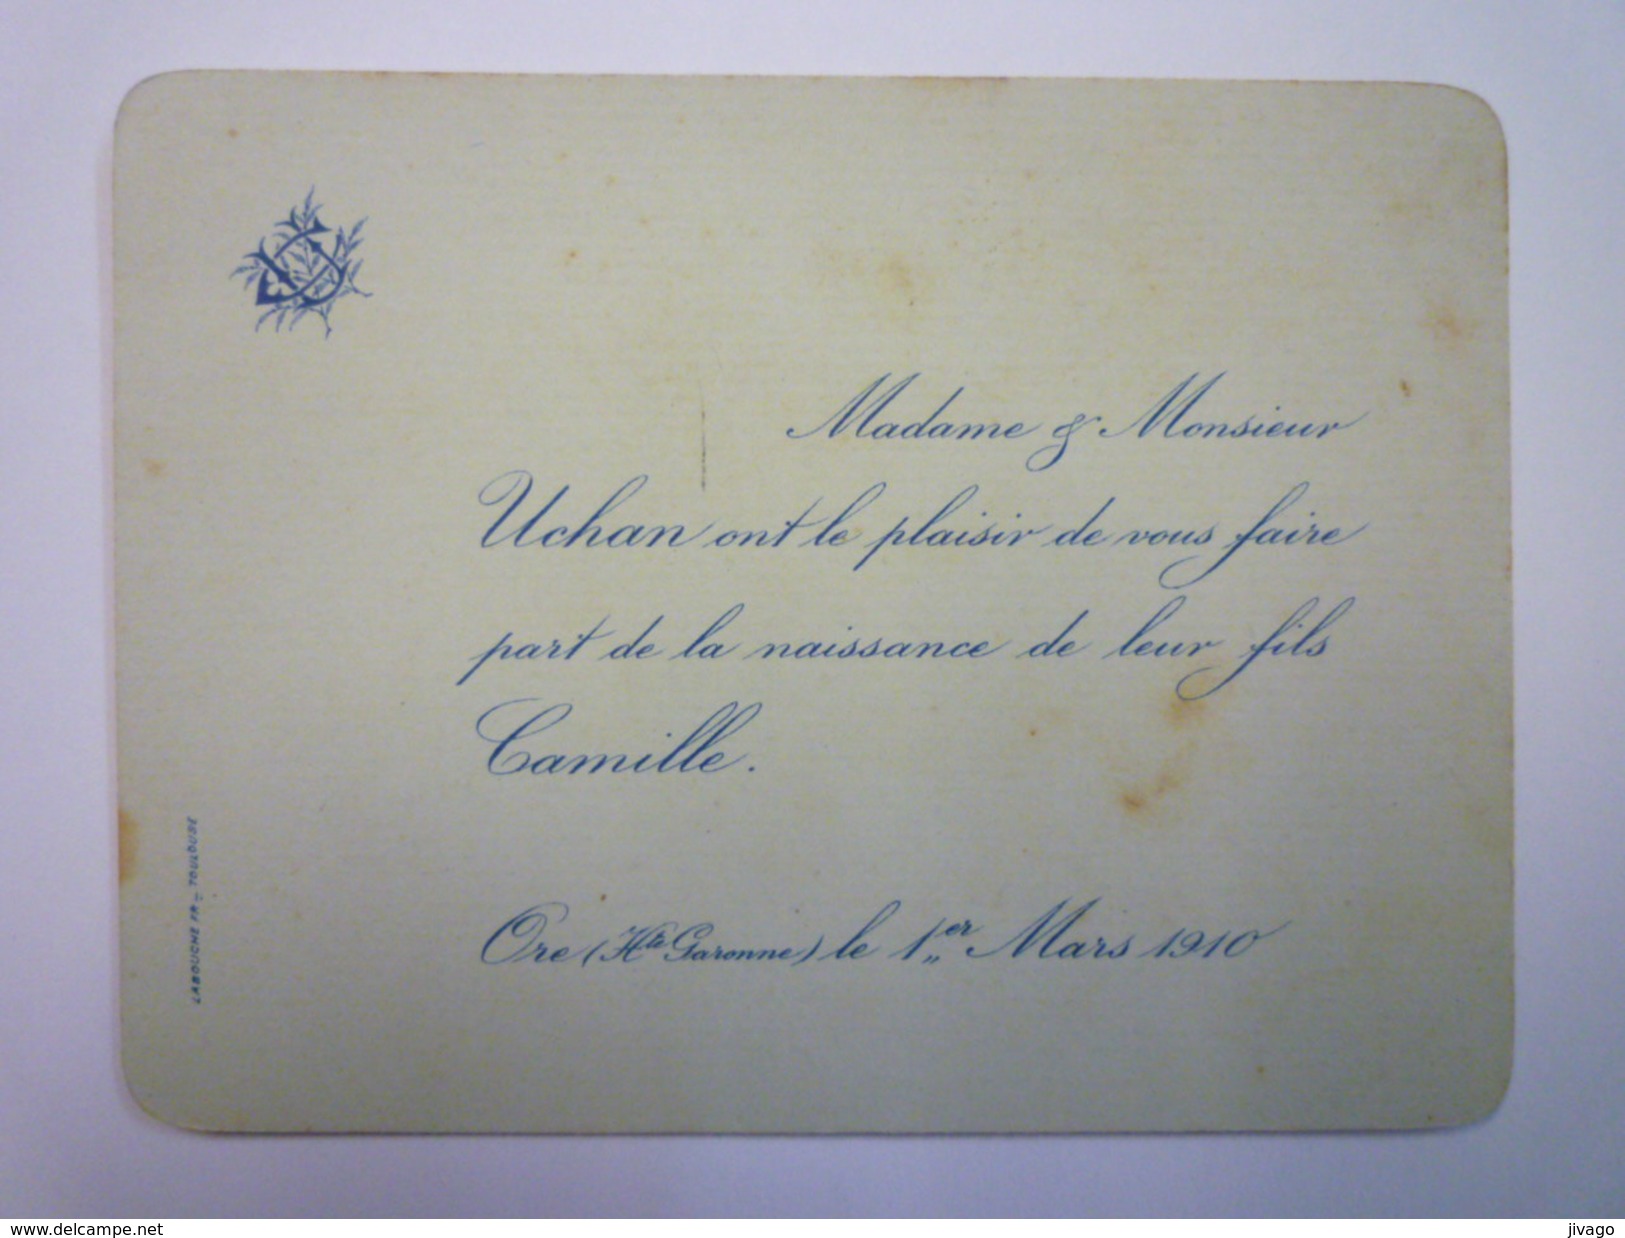 Madame & Monsieur
Uchan ont le plaisir de vous faire
part de la naissance de leur fils
Camille.
Ore (Hte Garonne) le 1er Mars 1910
LABOUCHE FR_ TOULOUSE
www.delcampe.net
jivago